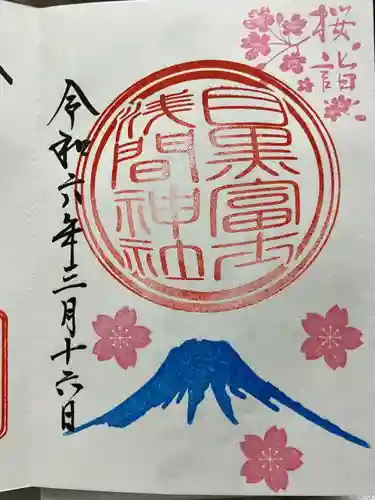 桜詣
目黒富士
浅間神社
令和六年三月十六日